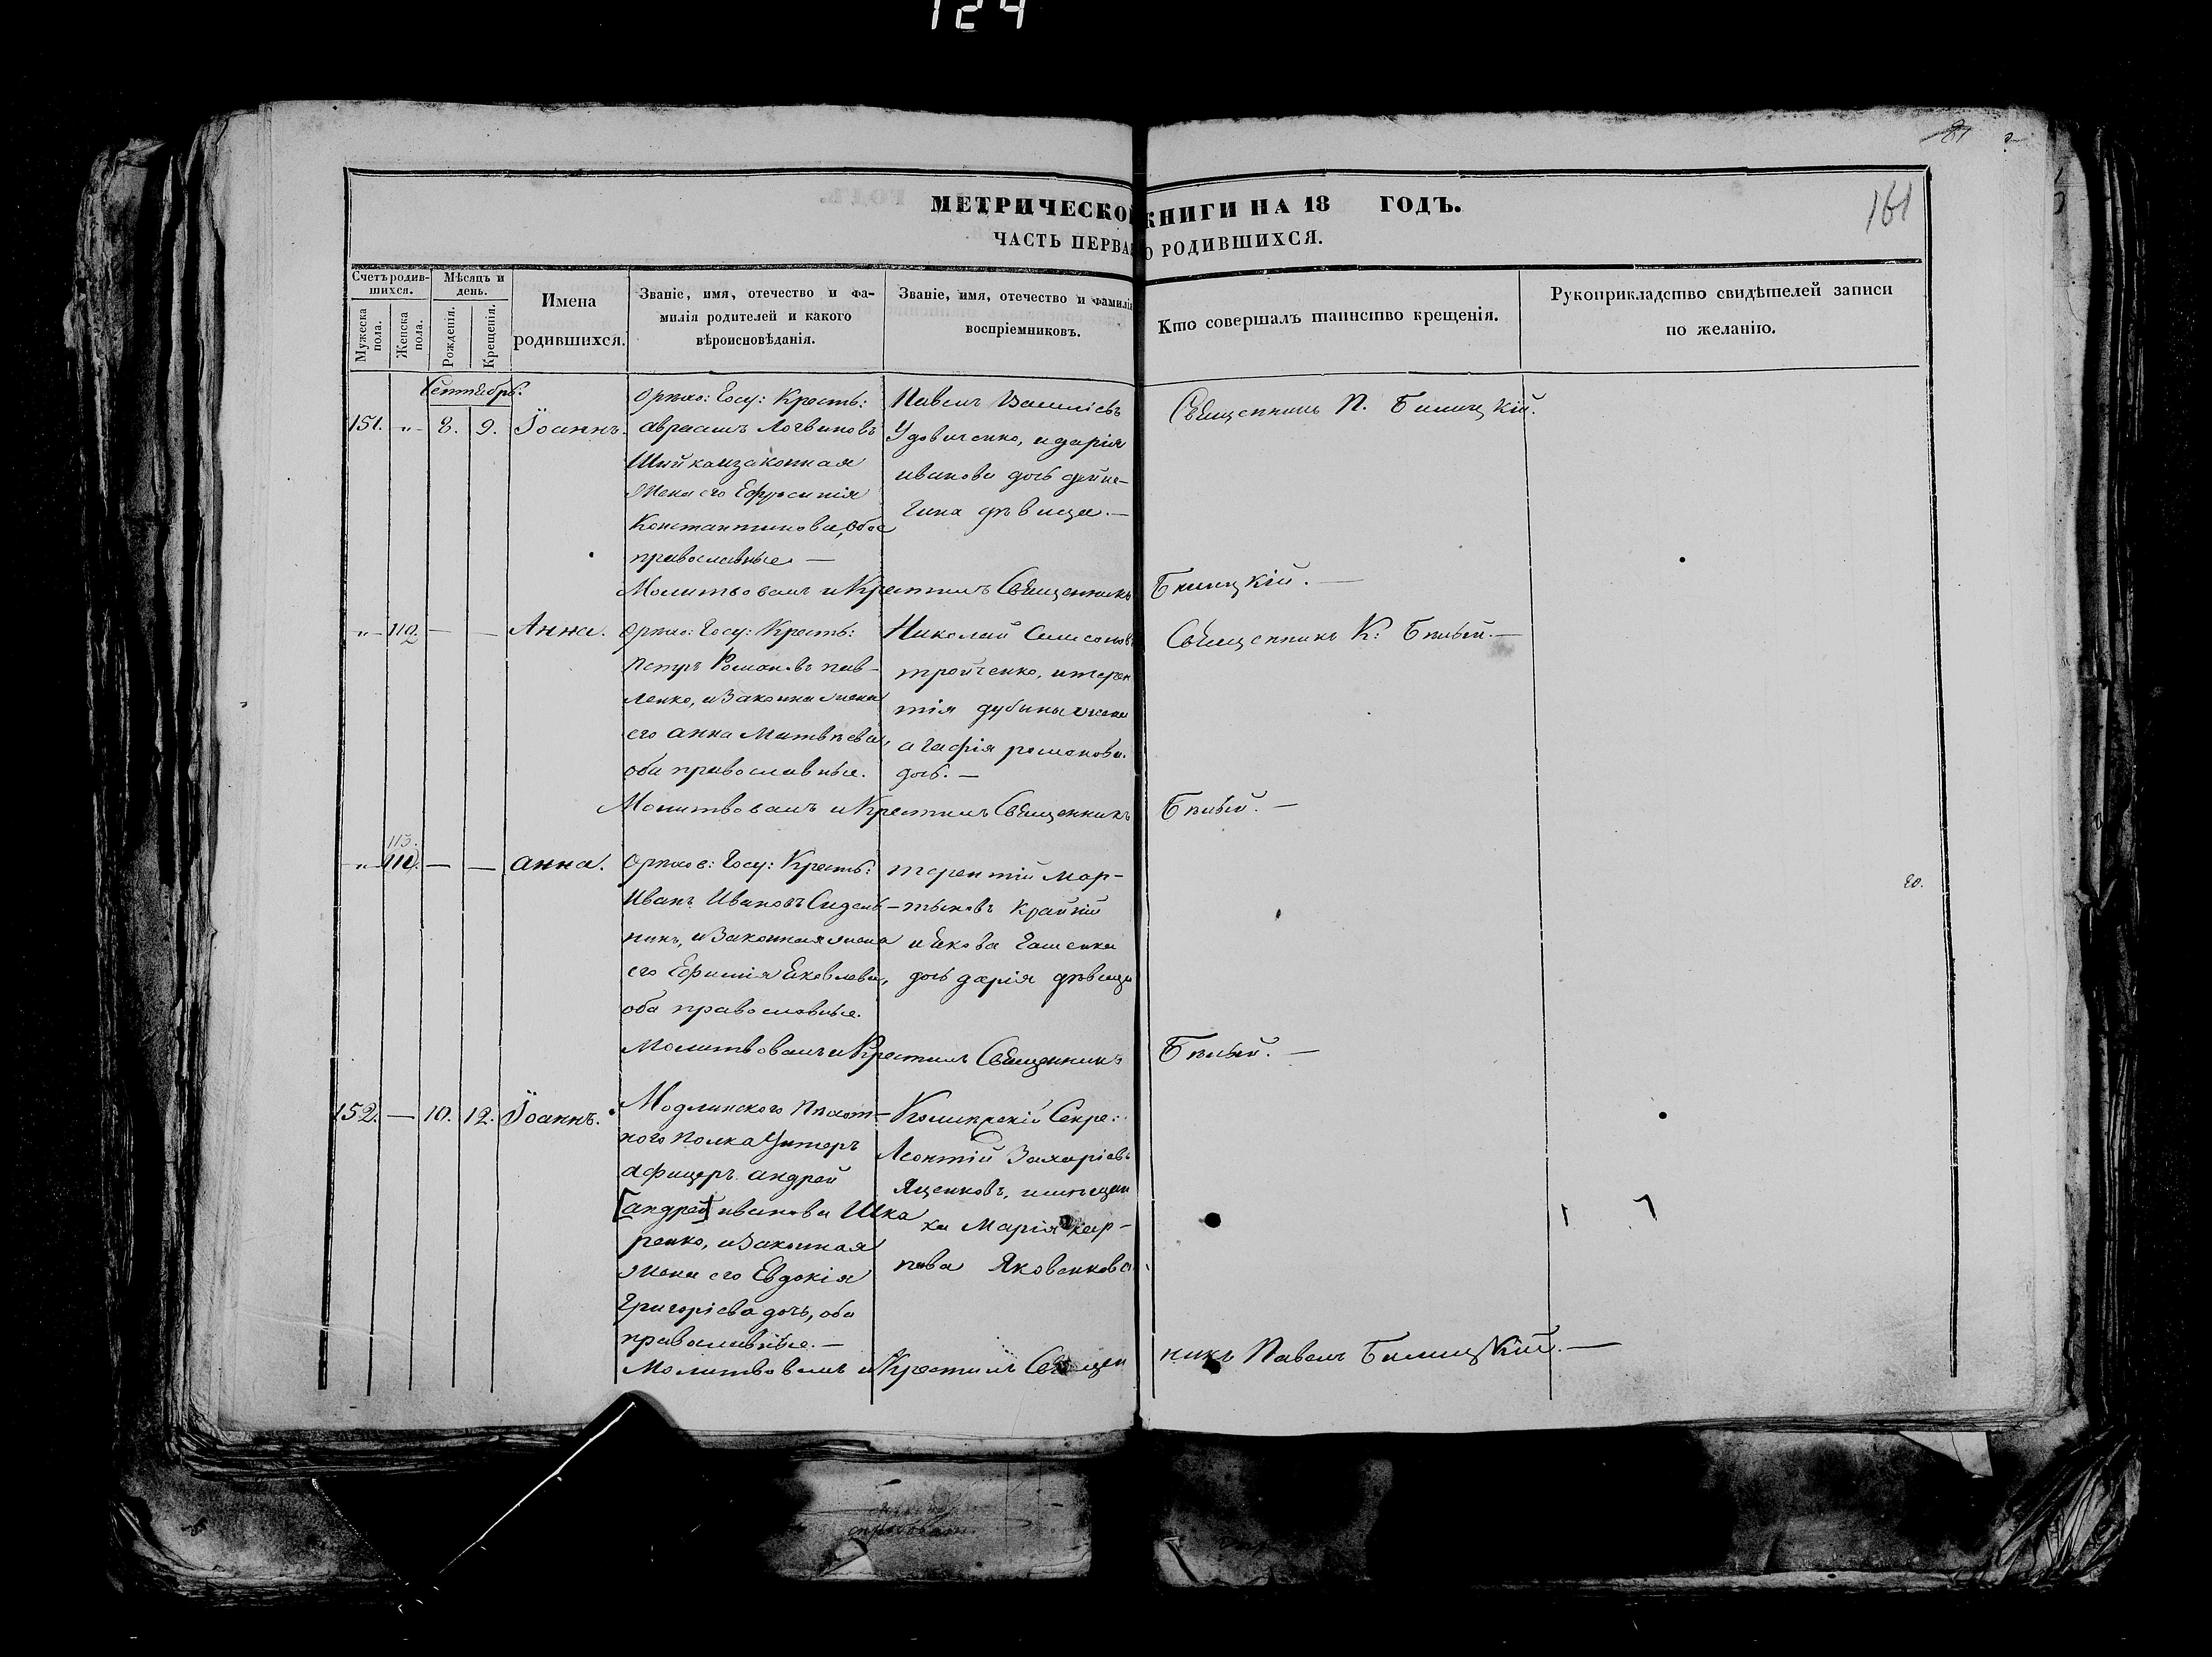 124
81
161
МЕТРИЧЕСКОЙ КНИГИ НА 18 ГОДЪ.
ЧАСТЬ ПЕРВАЯ О РОДИВШИХСЯ.
Счетъ родив-
шихся.
Мужеска
пола.
Женска
пола.
Мѣсяцъ и
день.
Рожденія.
Крещенія.
Имена
родившихся.
Званіе, имя, отечество и фа-
милія родителей и какого
вѣроисповѣданія.
Званіе, имя, отечество и фамилія
воспріемниковъ.
Кто совершалъ таинство крещенія.
Рукоприкладство свидѣтелей записи
по желанію.
Сентябрь:
151. „ 8. 9. Іоаннъ.
Орѣхо: Госу: Кресть:
авраамъ Логвиновъ
Шийка и законная
жена его Ефросинія
Константинова, обое
православные —
Павелъ Василіевъ
Удовиченко, и дарія
иванова дочь дейне-
гина дѣвица. —
Священникъ П. Билицкій.
Молитвовалъ и Крестилъ Священникъ Билицкій. —
„ 112. — — Анна.
Орѣхо: Госу: Кресть:
Петръ Романовъ пав-
ленко, и Законна жена
его анна Матвѣева,
оба православные.
Николай Симеоновъ
тройченко, и терен
тія дубины жена
агафія романова
дочь. —
Священникъ К: Бѣлый. —
Молитвовалъ и Крестилъ Священникъ Бѣлый. —
113.
„ — — анна.
Орѣхов: Госу: Кресть:
Иванъ Ивановъ Сидель-
никъ, и Законная жена
его Ефимія Яковлева,
оба православные.
терентій Мар-
тыновъ Крайній
и Якова Гашенка
дочь дарія дѣвица
20.
Молитвовалъ и Крестилъ Священникъ Бѣлый. —
152. — 10. 12. Іоаннъ.
Модлинского Пѣхот-
ного полка Унтеръ
афицеръ андрей
[андрей] иванова Шка
ренко, и Законная
жена его Евдокія
Григоріева дочь, оба
православные. —
Колежскій Секре:
Леонтій Захаріевъ
Яценковъ, и мѣщан
ка Марія кар-
пова Яковенкова
Молитвовалъ и Крестилъ Священ
никъ Павелъ Билицкій. —